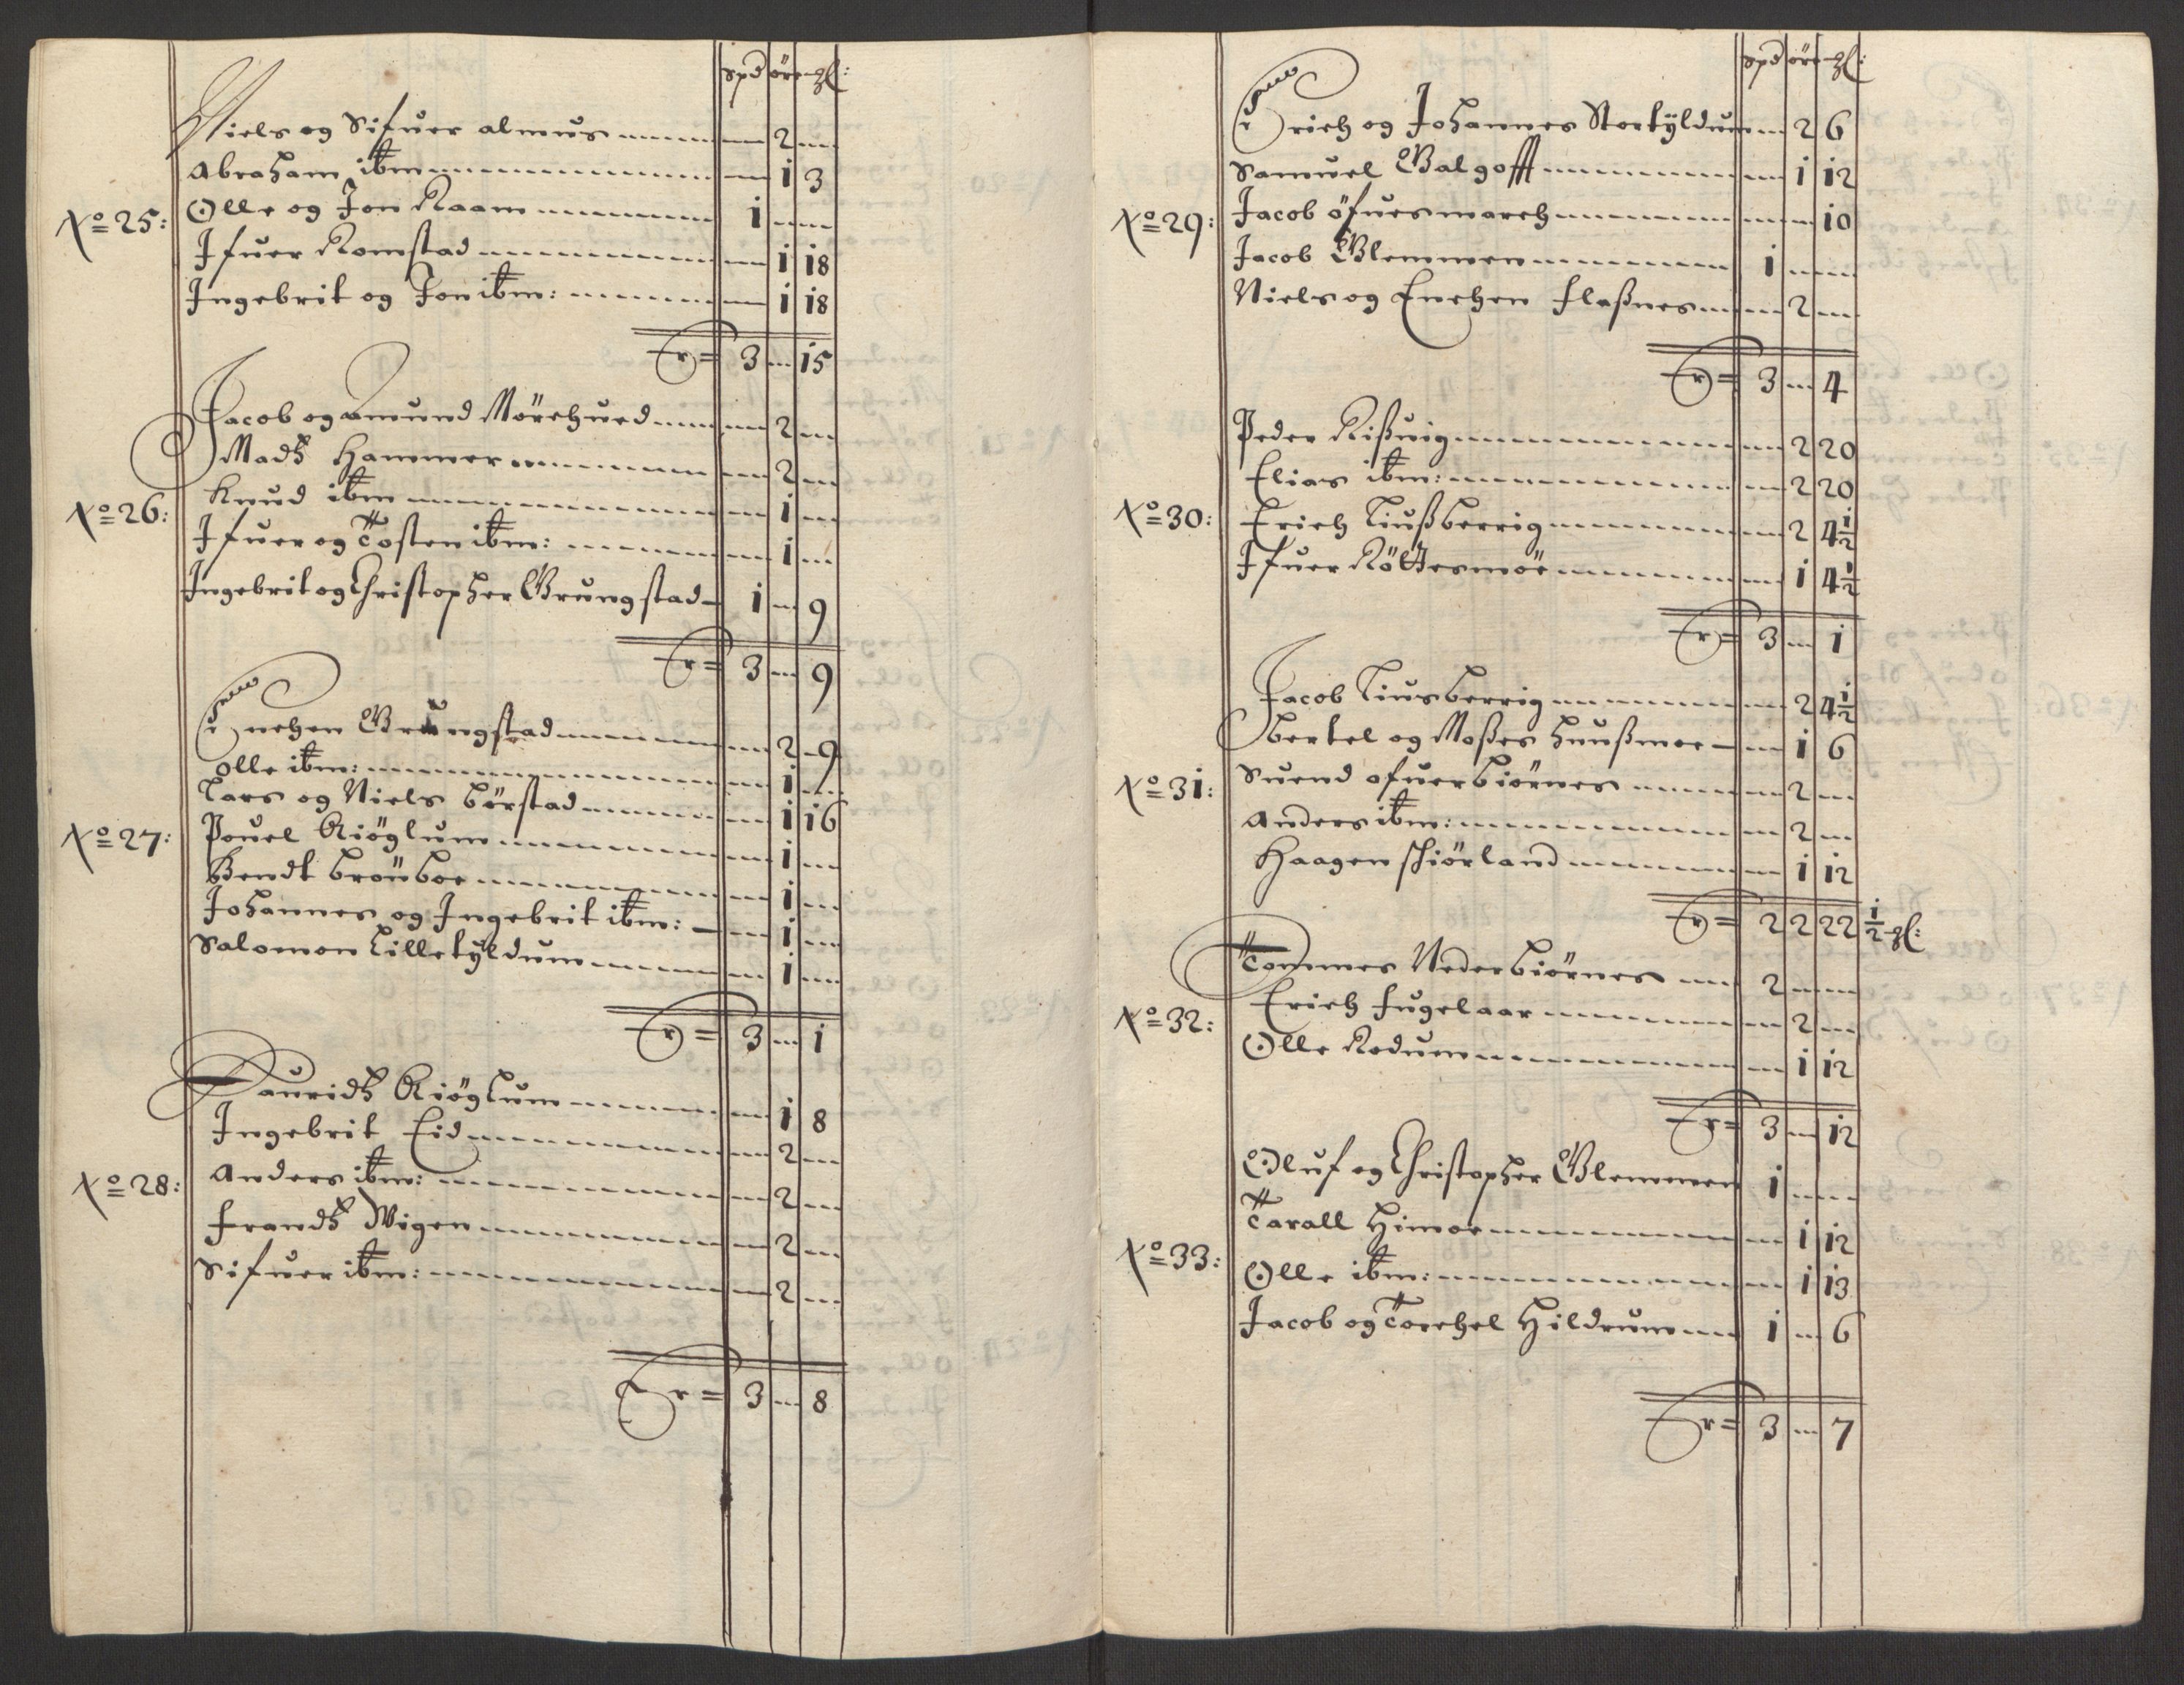 spd øre gl:
Niels og Sifuer almus ---- 2 ---
Abraham ibm ---- 1 3
No 25: Olle og Jon Raam ---- 1 ----
Ifuer Romstad ---- 1 18
Ingebrit og Jon ibm: ---- 1 18
Er = 3 --- 15
Jacob og Amund Mörchued ---- 2 ---
Madtz Hammer ---- 2 ---
No 26: Knud ibm ---- 1 ---
Ifuer og Tosten ibm: ---- 1 ---
Ingebrit og Christopher Grungstad - 1 -- 9
Er = 3 --- 9
Enchen Grungstad ---- 2 - 9
Olle ibm: ---- 1 ---
Lars og Niels börstad ---- 1 16
No 27: Pouel Kiöglum ---- 1 ---
Bendt bröuboe ---- 1 ---
Johannes og Ingebrit ibm: ---- 1 ---
Salomon Lilletÿldum ---- 1 ---
Er = 3 --- 1
Lauridtz Kiöglum ---- 1 8
Ingebrit Eid ---- 2 ---
No 28: Anders ibm: ---- 2 ---
frandtz Wigen ---- 2 ---
Sifuer ibm: ---- 2 ---
Er = 3 --- 8
spd øre gl:
Erich og Johannes Stortÿldum -- 2 6
Samuel Galgofft ---- 1 12
No 29: Jacob öfuesmarch ---- 10
Jacob Glemmen ---- 1 ----
Niels og Enchen flaßnes ---- 2 ---
Er = 3 --- 4
Peder Rißuig ---- 2 20
Elias ibm: ---- 2 20
No 30: Erich Liußberrig ---- 2 4½
Ifuer Röttesmöe ---- 1 4½
Er = 3 --- 1
Jacob Liusberrig ---- 2 4½
bertel og Moßes huußmoe -- 1 6
No 31: Suend ofuerbiörnes ---- 2 ---
Anders ibm: ---- 2 ---
Haagen schiörland ---- 1 12
Er = 2 2 22 ½ gl:
Tommes Nederbiörnes --- 2 ----
No 32: Erich fugelaar ---- 2 ---
Olle Rodum ---- 1 12
Er = 3 --- 12
Oluf og Christopher Glemmen 1 ----
Tarall Himoe ---- 1 12
No 33: Olle ibm: ---- 1 13
Jacob og Torchel Hildrum --- 1 -- 6
Er = 3 --- 7